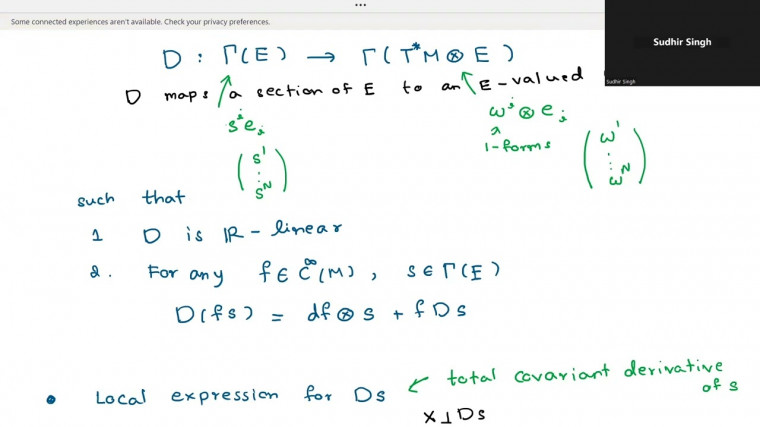 Some connected experiences aren't available. Check your privacy preferences.
Sudhir Singh
Sudhir Singh
D : Γ(E) → Γ(T*M ⊗ E)
D maps a section of E to an E-valued
sⁱeᵢ
ωⁱ ⊗ eᵢ
1-forms
(s¹ ⋮ sᴺ)
(ω¹ ⋮ ωᴺ)
such that
1 D is ℝ-linear
2. For any f ∈ C^∞(M), s ∈ Γ(E)
D(fs) = df ⊗ s + f Ds
• Local expression for Ds ← total covariant derivative
of s
X⊥Ds